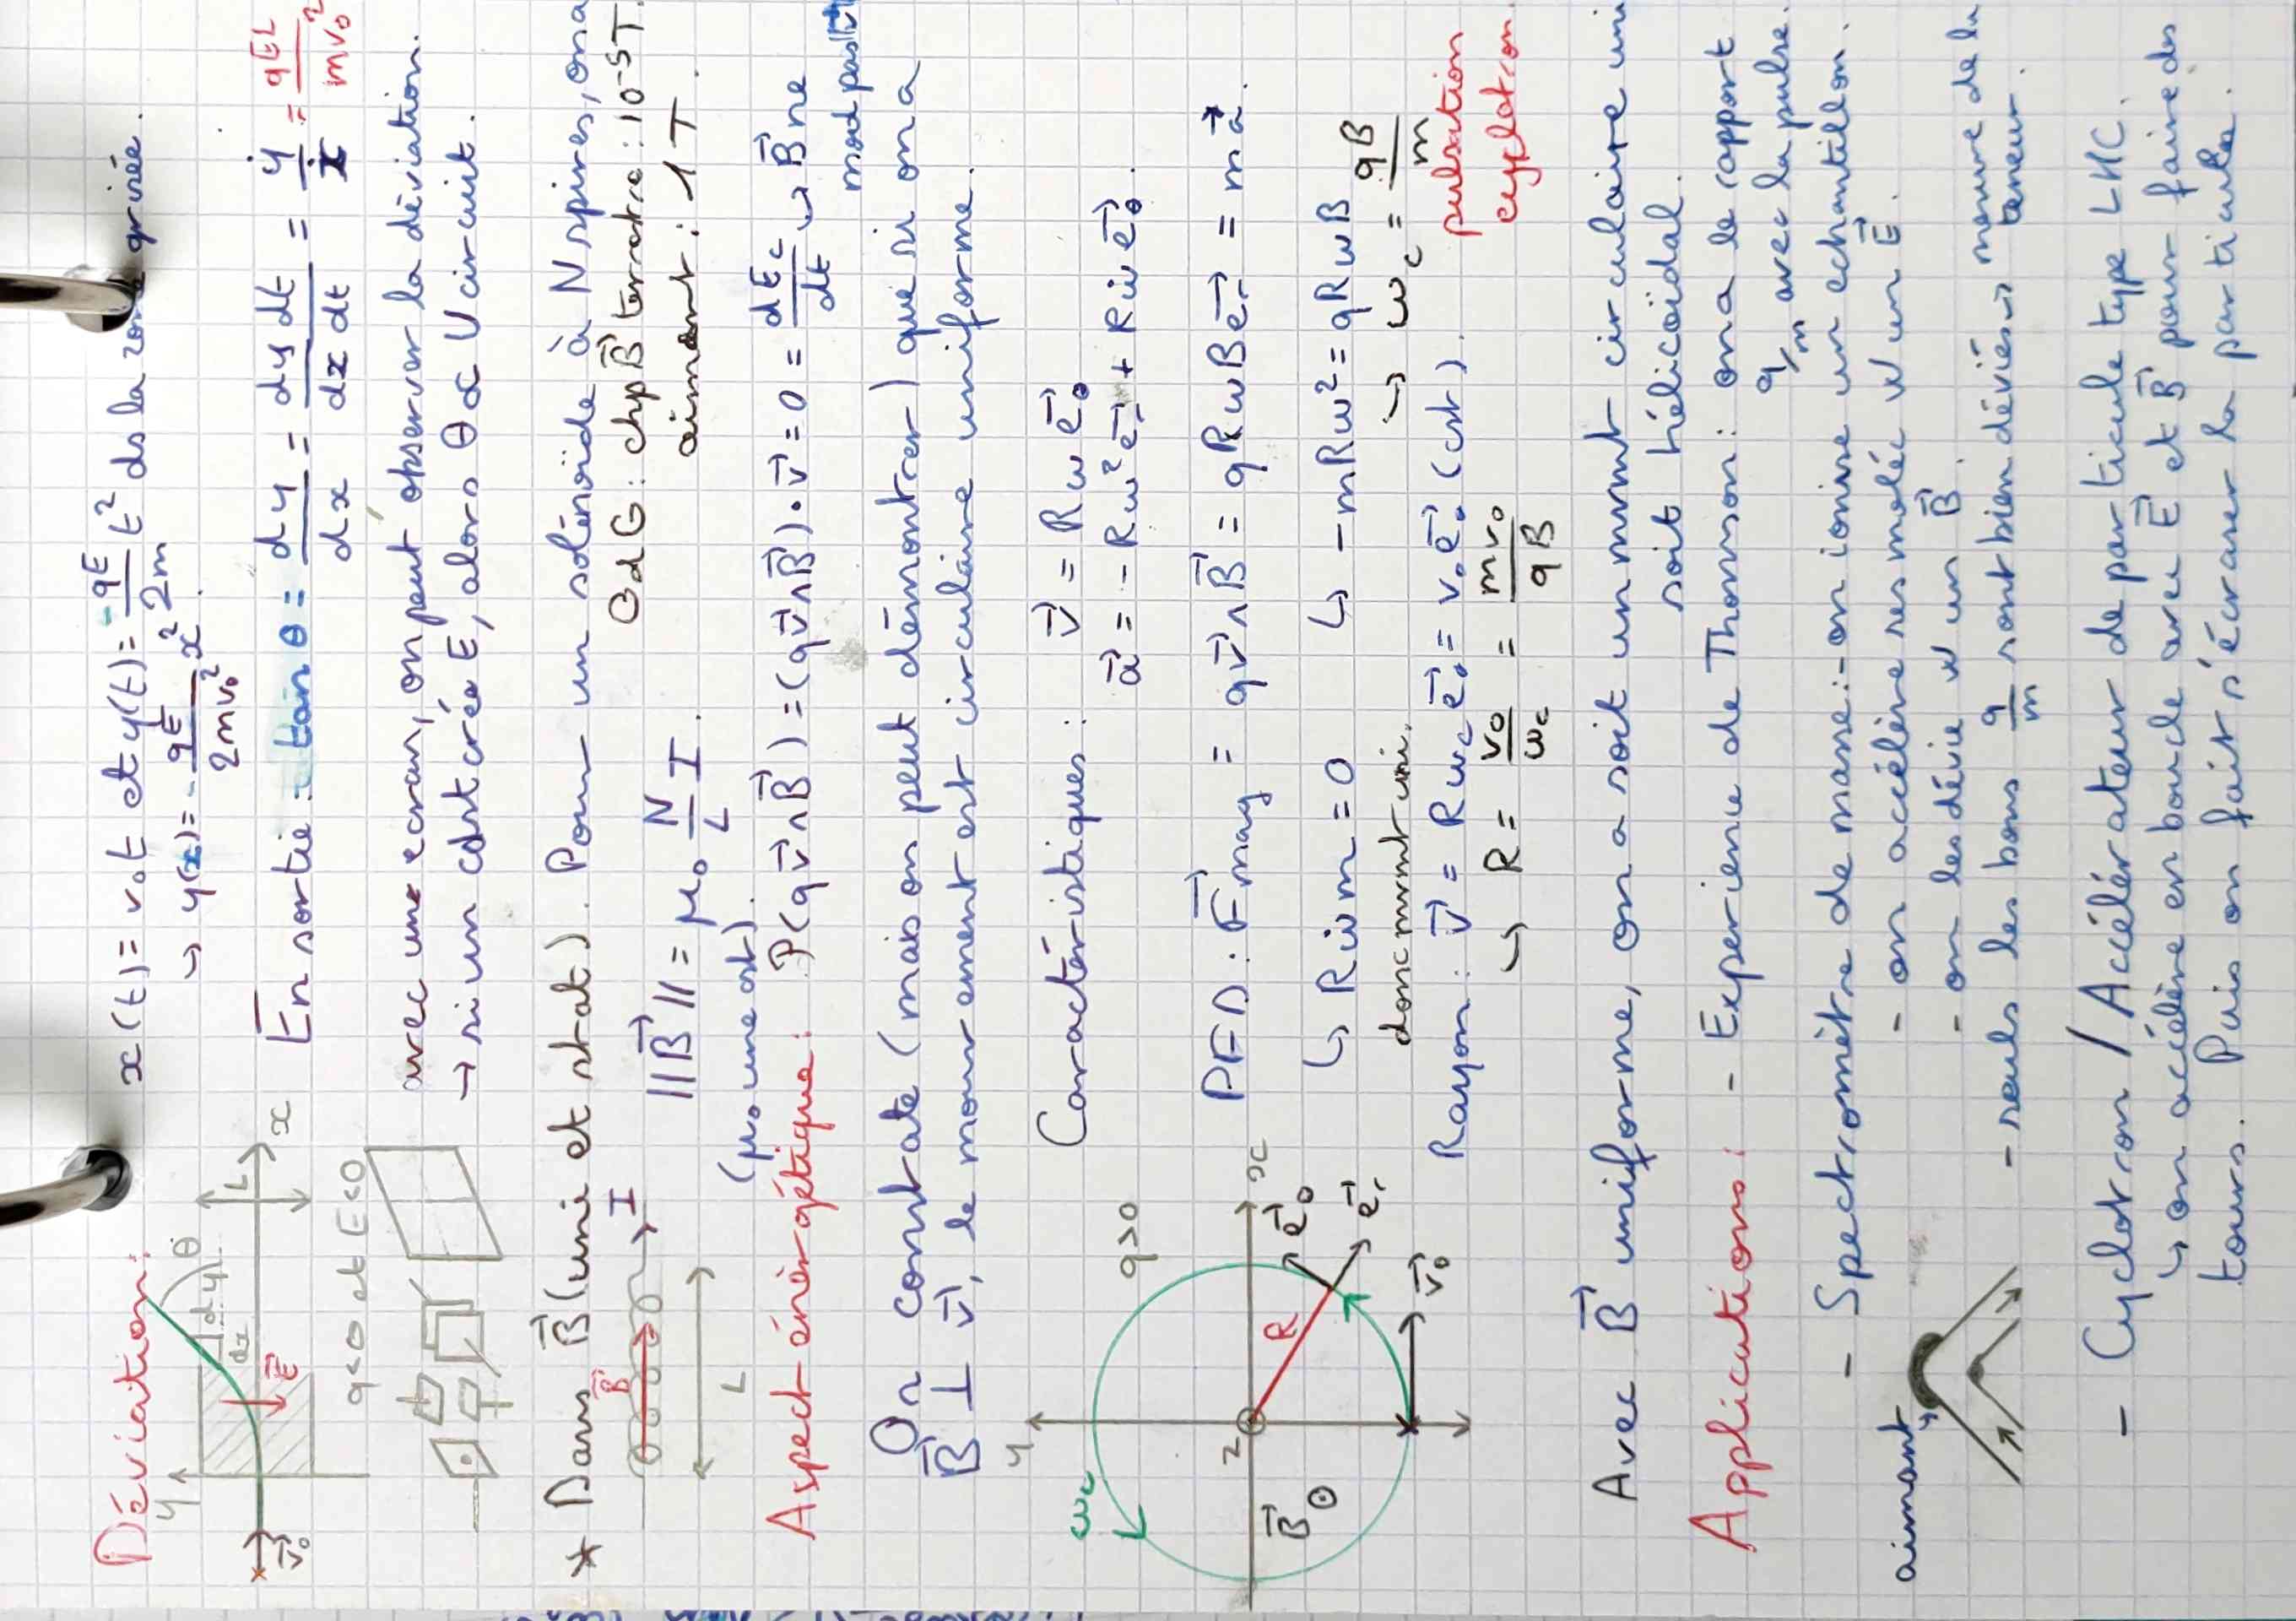 Déviation:
x(t) = v₀t et y(t) = -qE/2m t² ds la zone grisée.
↳ y(x) = -qE/2mv₀² x².
y
dx
dy
θ
L
x
E⃗
v⃗₀
q<0 et E<0
En sortie : tan θ = dy/dx = dy dt/dx dt = ẏ/ẋ = qEL/mv₀²
avec une ecran, on peut observer la déviation.
→ si un cdst crée E, alors θ ∝ U circuit.
* Dans B⃗ (uni et stat). Pour un solénoïde à N spires, on a
B⃗
I
L
||B⃗|| = μ₀ N/L I.
(μ₀ une cst).
OdG: chp B⃗ terrestre : 10⁻⁵ T.
aimant : 1 T.
Aspect énérgétique: P(qv⃗∧B⃗) = (qv⃗∧B⃗)·v⃗ = 0 = dEc/dt ↳ B⃗ ne
mod pas
On constate (mais on peut démontrer) que si on a
B⃗ ⊥ v⃗, le mouvement est circulaire uniforme.
y
ωc
q>0
x
e⃗θ
e⃗r
R
z
B⃗ ⊙
v⃗₀
Caractéristiques : v⃗ = Rωe⃗θ
a⃗ = -Rω²e⃗r + Rω̇e⃗θ.
PFD : F⃗mag = qv⃗∧B⃗ = qRωBe⃗r = ma⃗.
↳ Rω̇m = 0
donc mvmt uni.
↳ -mRω² = qRωB
↳ ωc = qB/m
pulsation
cyclotron.
Rayon : v⃗ = Rωc e⃗θ = v₀e⃗θ (cst).
↳ R = v₀/ωc = mv₀/qB
Avec B⃗ uniforme, on a soit un mvmt circulaire uni
soit hélicoïdal.
Applications : - Experience de Thomson : on a le rapport
q/m avec la pulse.
- Spectromètre de masse :- on ionise un echantillon.
- on accélère ses moléc w un E⃗.
- on les dévie w un B⃗.
- seuls les bons q/m sont bien déviés → mesure de la
teneur.
aimant
- Cyclotron / Accélérateur de particule type LHC.
↳ on accélère en boucle avec E⃗ et B⃗ pour faire des
tours. Puis on fait s'écraser la particule.